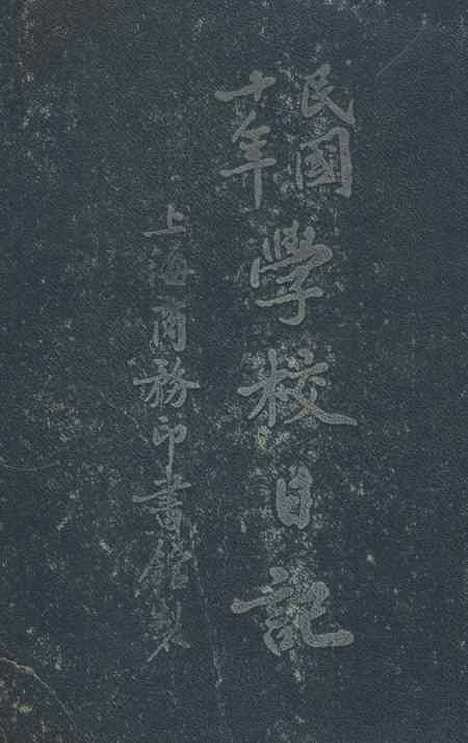 民國
十年
學校日記
上海商務印書館製